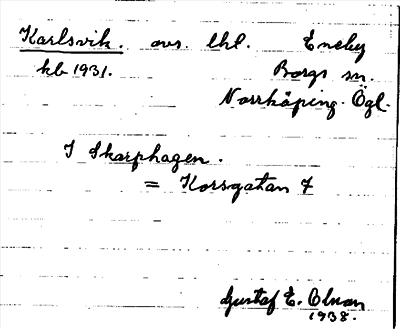 Karlsvik. avs. lhl. Eneby
kb 1931. Borgs sn.
Norrköping. Ögl.
I Skarphagen.
= Korsgatan 7
Gustaf E. Olman
1938.